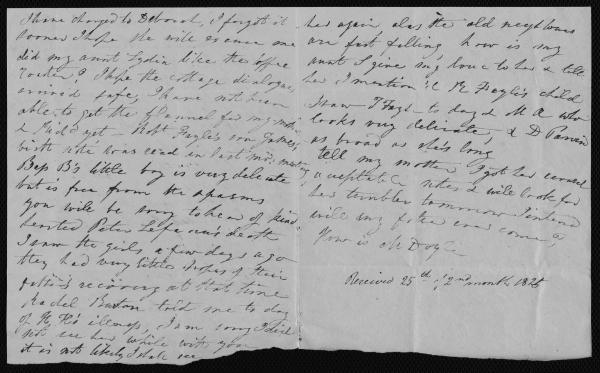 I have charged to Deborah, I forgot it
sooner I hope she will excuse me
did my aunt Lydia like the office
I hope the cottage dialogues
arrived safe, I have not been
able to get the flannel for my
yet - Robt Fayle's son James,
birth note was read in last mo. meeting
Bess B's little boy is very delicate
but is free from the spasms
you will be sorry to hear of kind
hearted Peter death
I saw the girls a few days ago
they had very little hopes of their
father's recovering at that time
Rachel told me to day
of H H's illness, I am sorry I did
not see her while with you
it is not likely I shall see
her again alas the old neighbours
are fast falling, how is my
aunt I give my love to her & tell
her I mention'd R Fayle's child
I saw T Fayle to day & M A who
looks very delicate, & D
as broad as she's long
tell my mother I got her earnest
acceptable note & will look for
her tumbler tomorrow I intend
will my father ever come,
How is M Doyle
Received 25th of 2nd month 1826